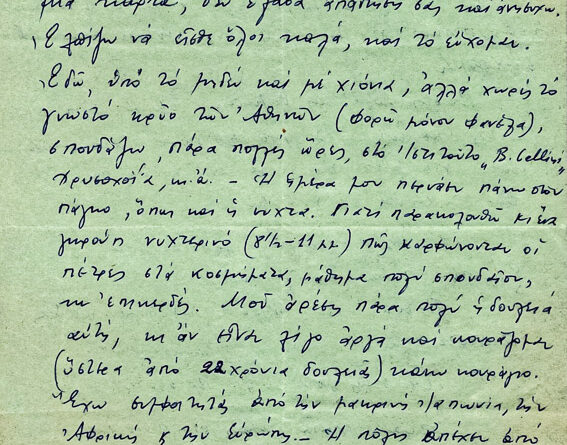 μιά κάρτα, δέν ἔλαβα ἀπάντησή σας καί ἀνησυχῶ.
Ἐλπίζω νά εἶσθε ὅλοι καλά, καί τό εὔχομαι.
Ἐδῶ, ὑπό τό μηδέν καί μέ χιόνια, ἀλλά χωρίς τό
γνωστό κρύο τῶν Ἀθηνῶν (φορῶ μόνον φανέλα),
σπουδάζω, πάρα πολλές ὧρες, στό Ἰστιτοῦτο „B. Cellini"
χρυσοχοΐα, κ.ἄ. – Ἡ ἡμέρα μου περνάει πάνω στόν
πάγκο, ὅπως καί ἡ νύχτα. Γιατί παρακολουθῶ κι ἕνα
γκρούπ νυχτερινό (8½-11 μμ) πῶς καρφώνονται οἱ
πέτρες στά κοσμήματα, μάθημα πολύ σπουδαῖον,
κι ἐπικερδές. Μοῦ ἀρέσει πάρα πολύ ἡ δουλειά
αὐτή, κι ἄν εἶναι λίγο ἀργά καί κουράζομαι
(ὕστερα ἀπό 22 χρόνια δουλειᾶς) κάνω κουράγιο.
Ἔχω συμφοιτητάς ἀπό τήν μακρινή Ἰαπωνία, τήν
Ἀφρική κ τήν Εὐρώπη. – Ἡ πόλη ἀπέχει ἀπό